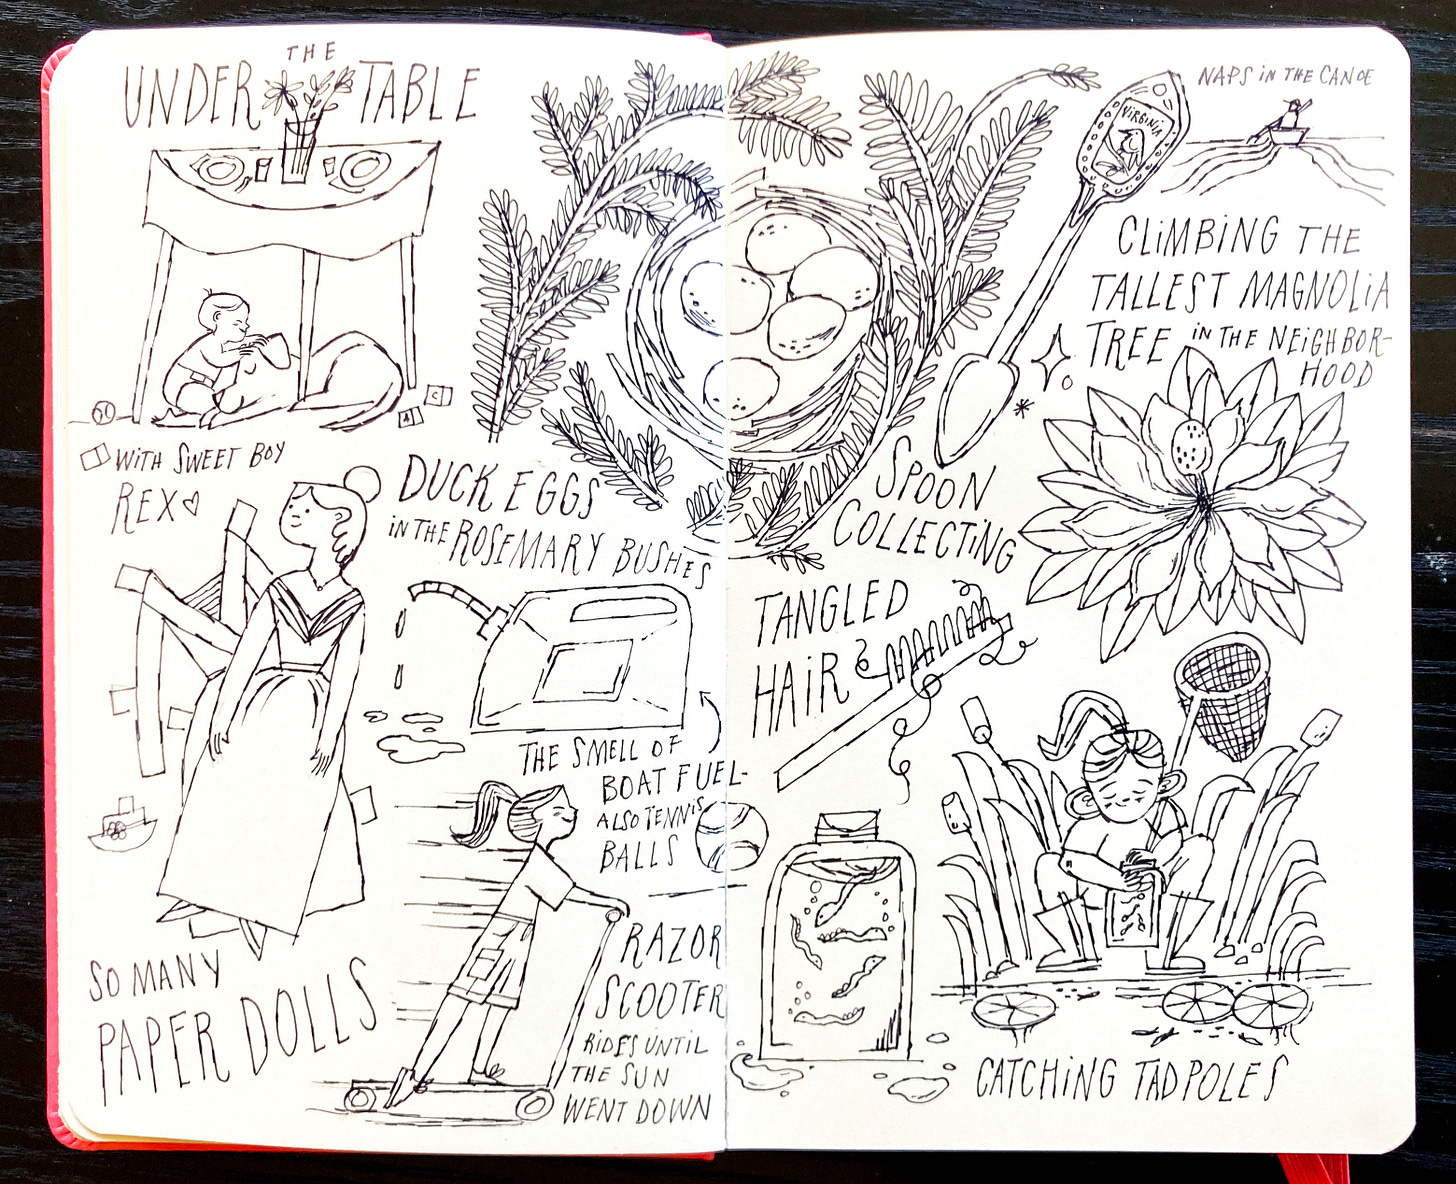 THE
UNDER TABLE
WITH SWEET BOY
REX
C
A
DUCK EGGS
IN THE ROSEMARY BUSHES
THE SMELL OF
BOAT FUEL-
ALSO TENNIS
BALLS
SO MANY
PAPER DOLLS
RAZOR
SCOOTER
RIDES UNTIL
THE SUN
WENT DOWN
NAPS IN THE CANOE
VIRGINIA
CLIMBING THE
TALLEST MAGNOLIA
TREE IN THE NEIGHBOR-
HOOD
SPOON
COLLECTING
TANGLED
HAIR
CATCHING TADPOLES